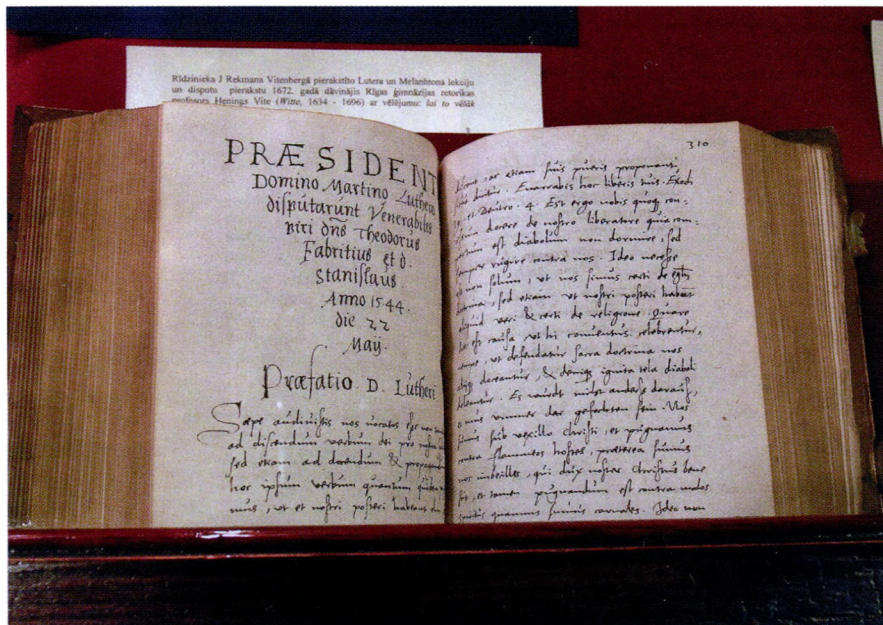 Rīdzinieka J Rekmana Vitenbergā pierakstīto Lutera un Melanhtona lekciju
un disputu pierakstu 1672. gadā dāvinājis Rīgas ģimnāzijas retorikas
profesors Henings Vite (Witte, 1634 - 1696) ar vēlējumu: lai to vēlāk
PRÆSIDENT
Domino Martino Luthero
disputarunt Venerabiles
viri dns Theodorus
Fabritius et d.
Stanislaus
Anno 1544.
die 22
Maij.
Præfatio D. Lutheri
Sæpe audivistis nos vocatos esse non
ad discendum verbum dei pro
sed etiam ad docendum &
hoc ipsum verbum quantum
mus, ut et nostri posteri habeant
310
ac etiam suis pueris proponant
Enarrabis hoc liberis tuis. Exodi
et Deutro. 4. Est ergo nobis quoq con-
docere de nostro liberatore quia com-
est diabolum non dormire, sed
semper rugire contra nos. Ideo necesse
non solum, ut nos simus certi de
doctrina, sed etiam ut nostri posteri habeant
aliquid veri & certi de religione. Quare
est causa, ut hi conventus celebrentur,
ut defendatur sacra doctrina nos
doceantur, & deniq ignita tela diaboli
Es wirdt nicht anders darauß,
immer dar gefochten sein. Nos
sumus sub vexillo Christi, et pugnamus
contra flammeos hostes, præterea sumus
nos imbecilles, qui dux noster Christus bene
sit, et tamen pugnandum est contra malos
quamvis simus carnales. Ideo non